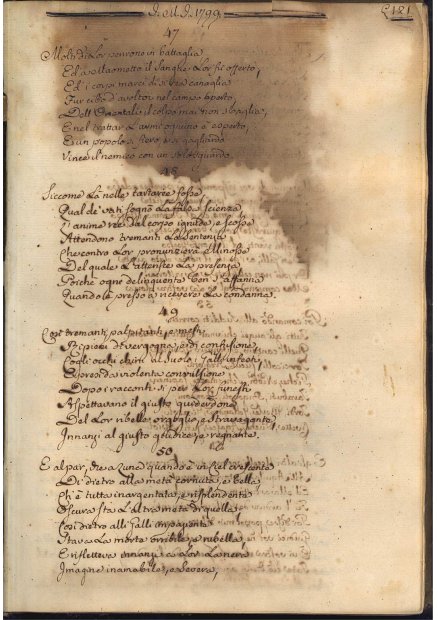 1799
47
Molti di Lor perirono in battaglia
Ed a Maometto il Sangue Lor fu offerto,
Ed i corpi marci di
Fur cibo d'avoltoi nel campo aperto,
il colpo mai non sbaglia,
E nel trattar L'armi ognuno è esperto,
È un popolo sì fiero e sì gagliardo
Vince il nemico con un solo sguardo
48
Siccome Là nelle tartaree fosse
Qual de' sognò La scienza
L'anime ree dal corpo ignude, e scosse
Attendono tremanti La Sentenza
Che contro Lor pronunzierà Minosse
Del quale La presenza
Poichè ogne delinquente con
Quando è presso a ricevere La condanna.
49
Così tremanti, palpitanti, e mesti,
di vergogna, e di confusione
Cogli occhi chini al Suolo i Galli infesti,
violenta convulsione
Dopo i racconti sì per Lor funesti
Aspettavano il giusto guiderdone
Del Lor ribelle orgoglio, e stravagante
Innanzi al giusto giudice, e regnante.
50
E al par, che a Luna quando è in Ciel crescente
Di dietro alla metà cornuta, e bella
Ch'è tutta inargentata, e risplendente
Oscura sta L'altra metà di quella
Così dietro alli Galli
Stava La morte orribile, e rubella,
E rifletteva innanzi a Lor La nera
Imagine inamabile, e severa,